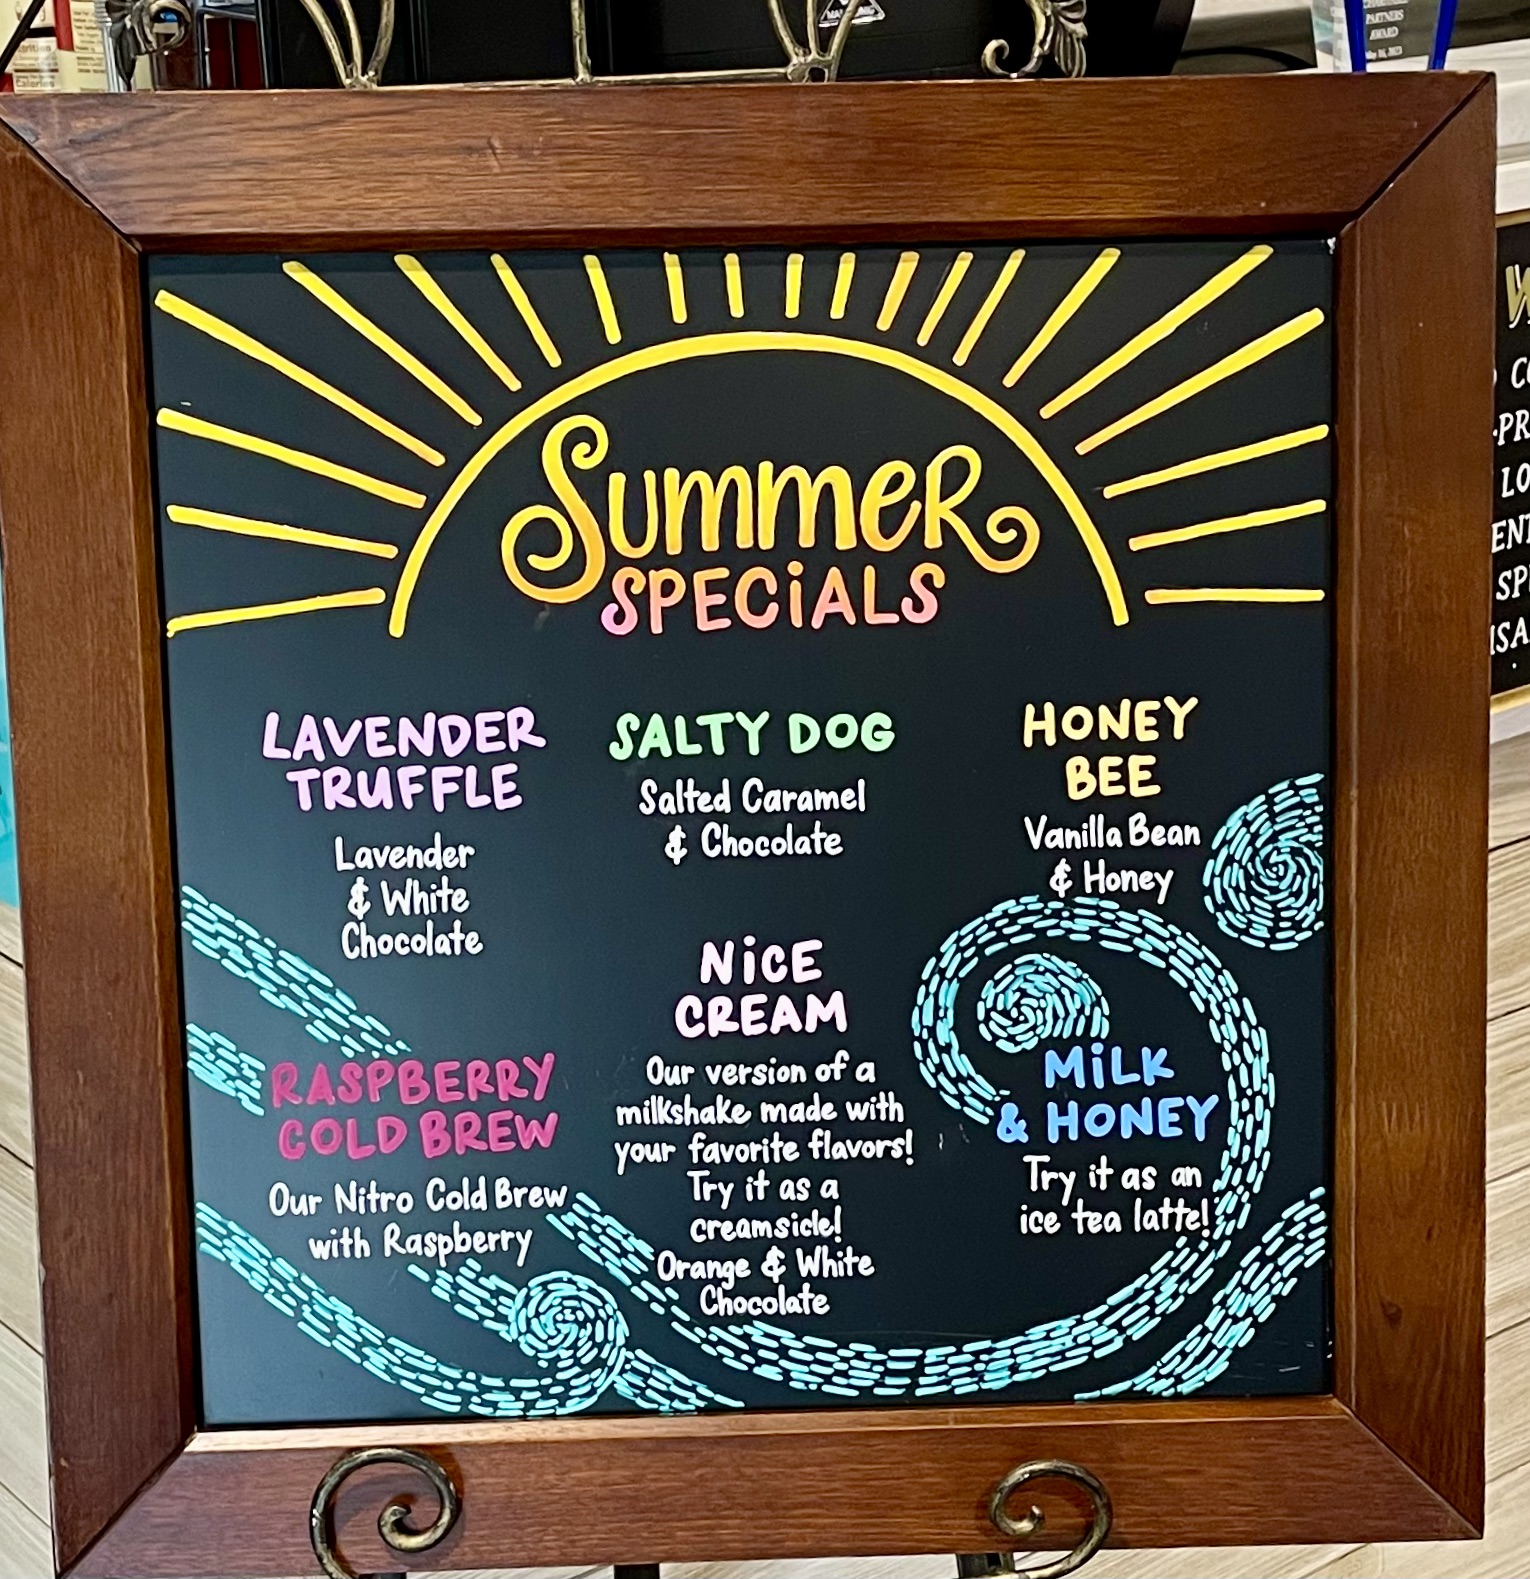 Summer
SPECiALS
LAVENDER
TRUFFLE
Lavender
& White
Chocolate
SALTY DOG
Salted Caramel
& Chocolate
HONEY
BEE
Vanilla Bean
& Honey
RASPBERRY
COLD BREW
Our Nitro Cold Brew
with Raspberry
NiCE
CREAM
Our version of a
milkshake made with
your favorite flavors!
Try it as a
creamsicle!
Orange & White
Chocolate
MiLK
& HONEY
Try it as an
ice tea latte!
PARTNERS
AWARD